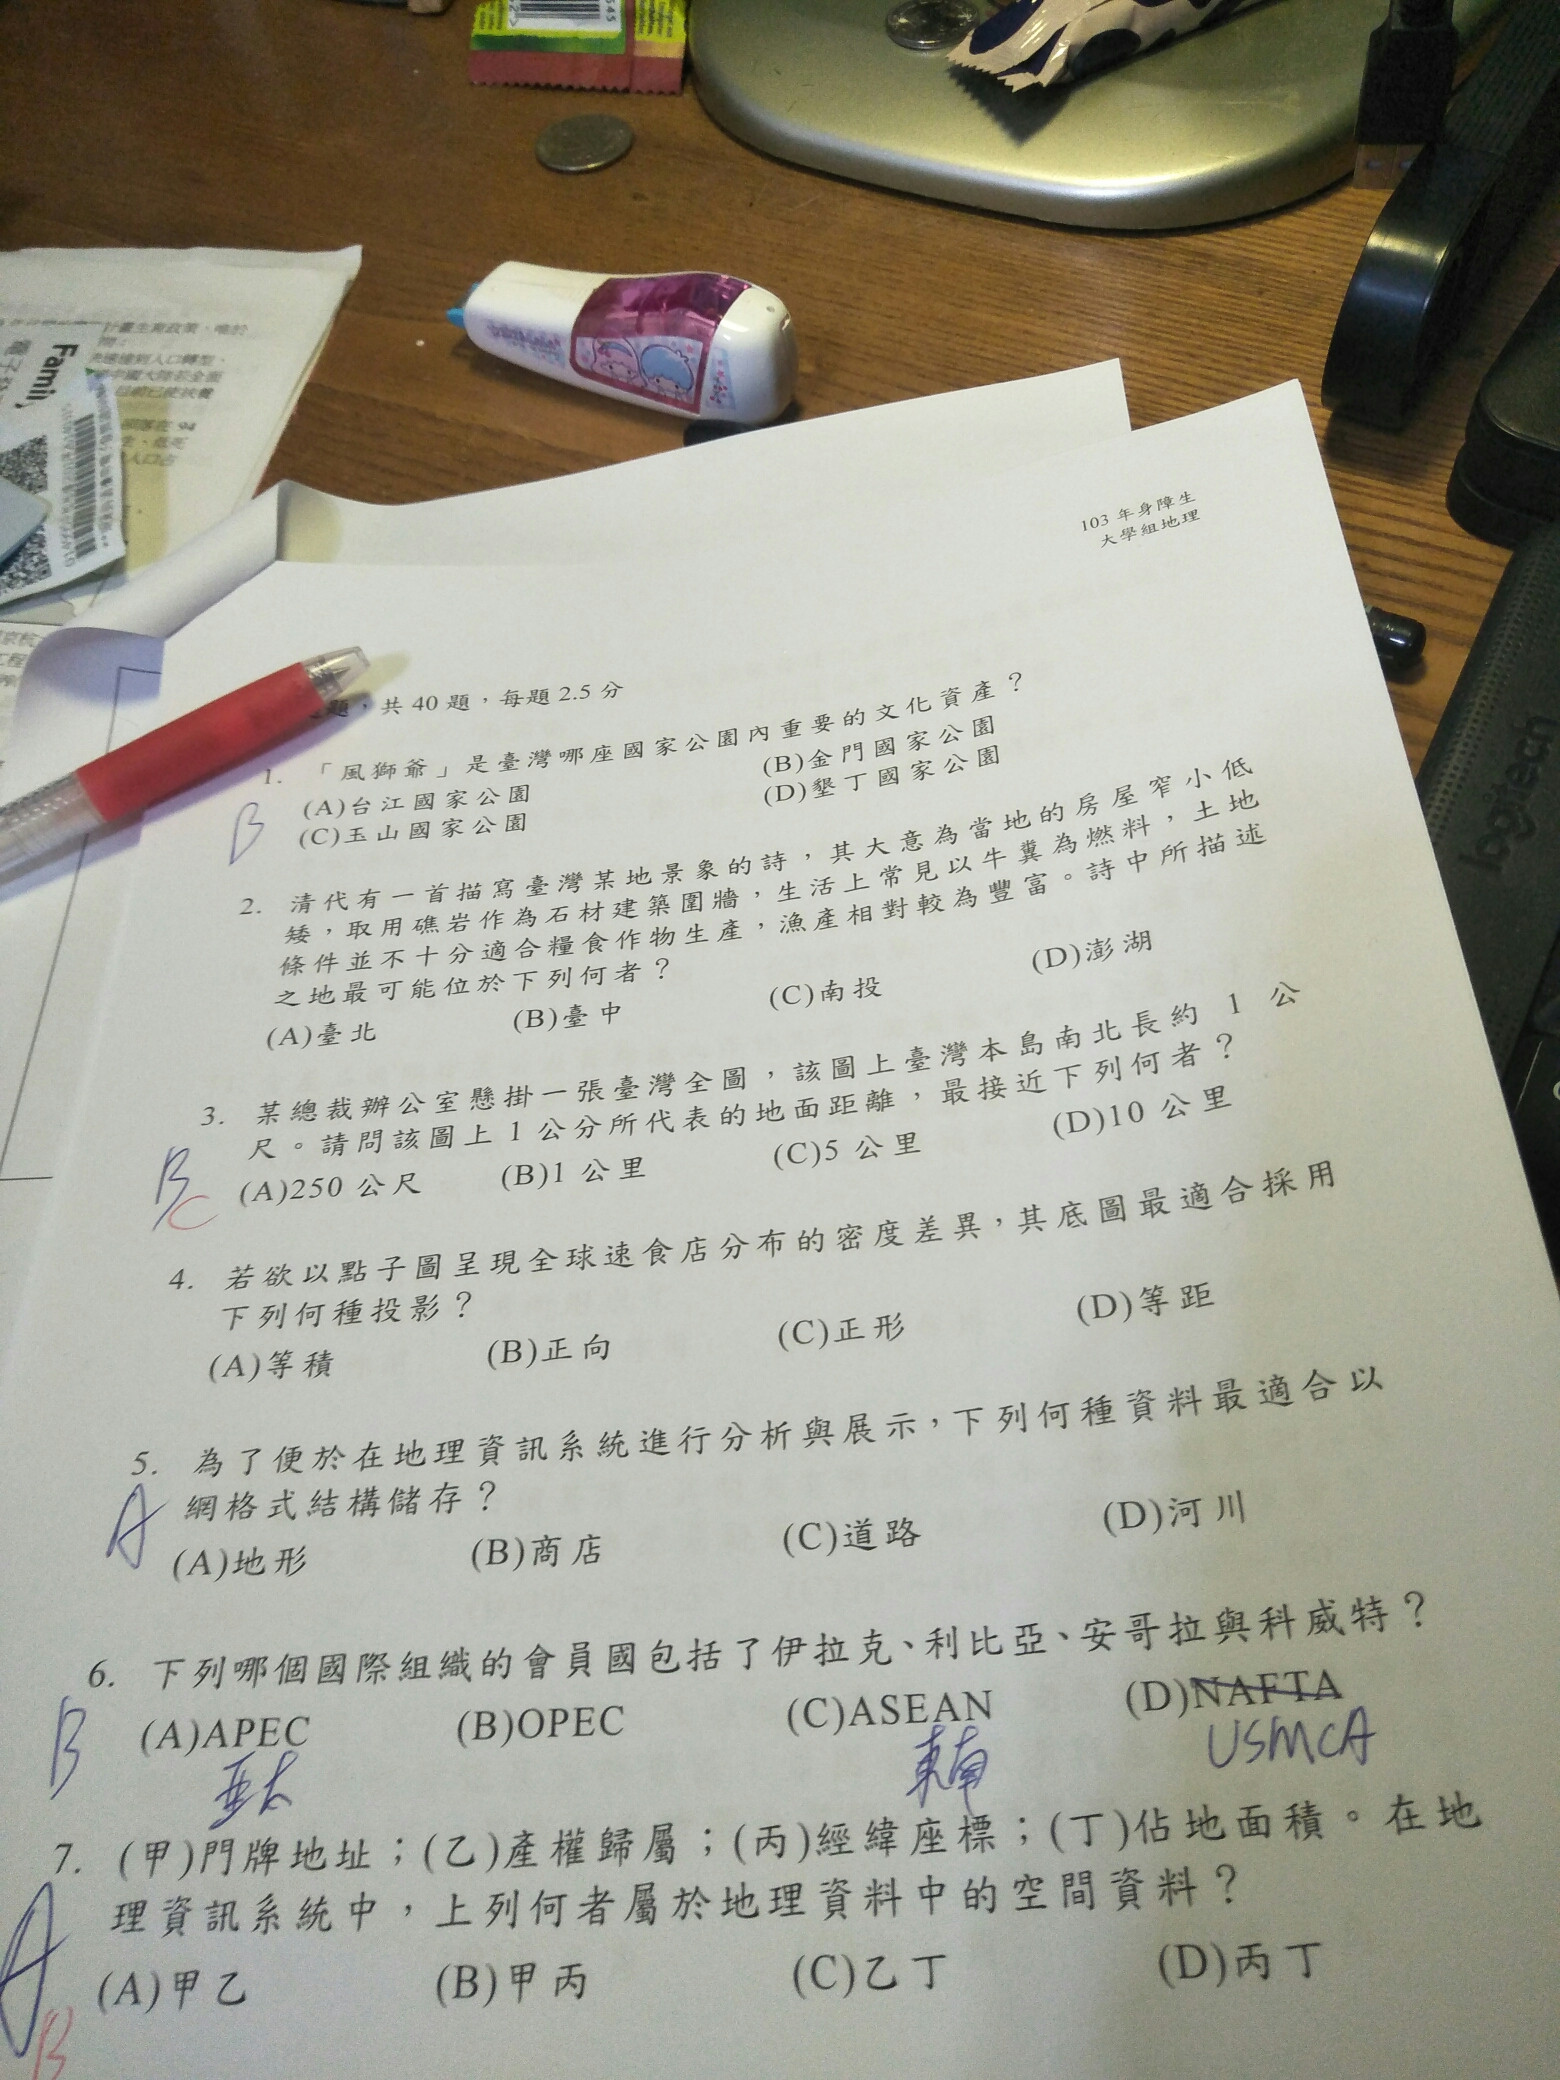 Famil
計畫生育政策，唯於
快速達到人口轉型，
中國大陸若全面
103 年身障生
大學組地理
題，共 40 題，每題 2.5 分
1. 「風獅爺」是臺灣哪座國家公園內重要的文化資產？
(A)台江國家公園 (B)金門國家公園
(C)玉山國家公園 (D)墾丁國家公園
B
2. 清代有一首描寫臺灣某地景象的詩，其大意為當地的房屋窄小低
矮，取用礁岩作為石材建築圍牆，生活上常見以牛糞為燃料，土地
條件並不十分適合糧食作物生產，漁產相對較為豐富。詩中所描述
之地最可能位於下列何者？
(A)臺北 (B)臺中 (C)南投 (D)澎湖
3. 某總裁辦公室懸掛一張臺灣全圖，該圖上臺灣本島南北長約 1 公
尺。請問該圖上 1 公分所代表的地面距離，最接近下列何者？
(A)250 公尺 (B)1 公里 (C)5 公里 (D)10 公里
B
C
4. 若欲以點子圖呈現全球速食店分布的密度差異，其底圖最適合採用
下列何種投影？
(A)等積 (B)正向 (C)正形 (D)等距
5. 為了便於在地理資訊系統進行分析與展示，下列何種資料最適合以
網格式結構儲存？
A
(A)地形 (B)商店 (C)道路 (D)河川
6. 下列哪個國際組織的會員國包括了伊拉克、利比亞、安哥拉與科威特？
B
(A)APEC (B)OPEC (C)ASEAN (D)NAFTA
亞太 東南 USMCA
7. (甲)門牌地址；(乙)產權歸屬；(丙)經緯座標；(丁)佔地面積。在地
理資訊系統中，上列何者屬於地理資料中的空間資料？
A
(A)甲乙 (B)甲丙 (C)乙丁 (D)丙丁
B
logitech